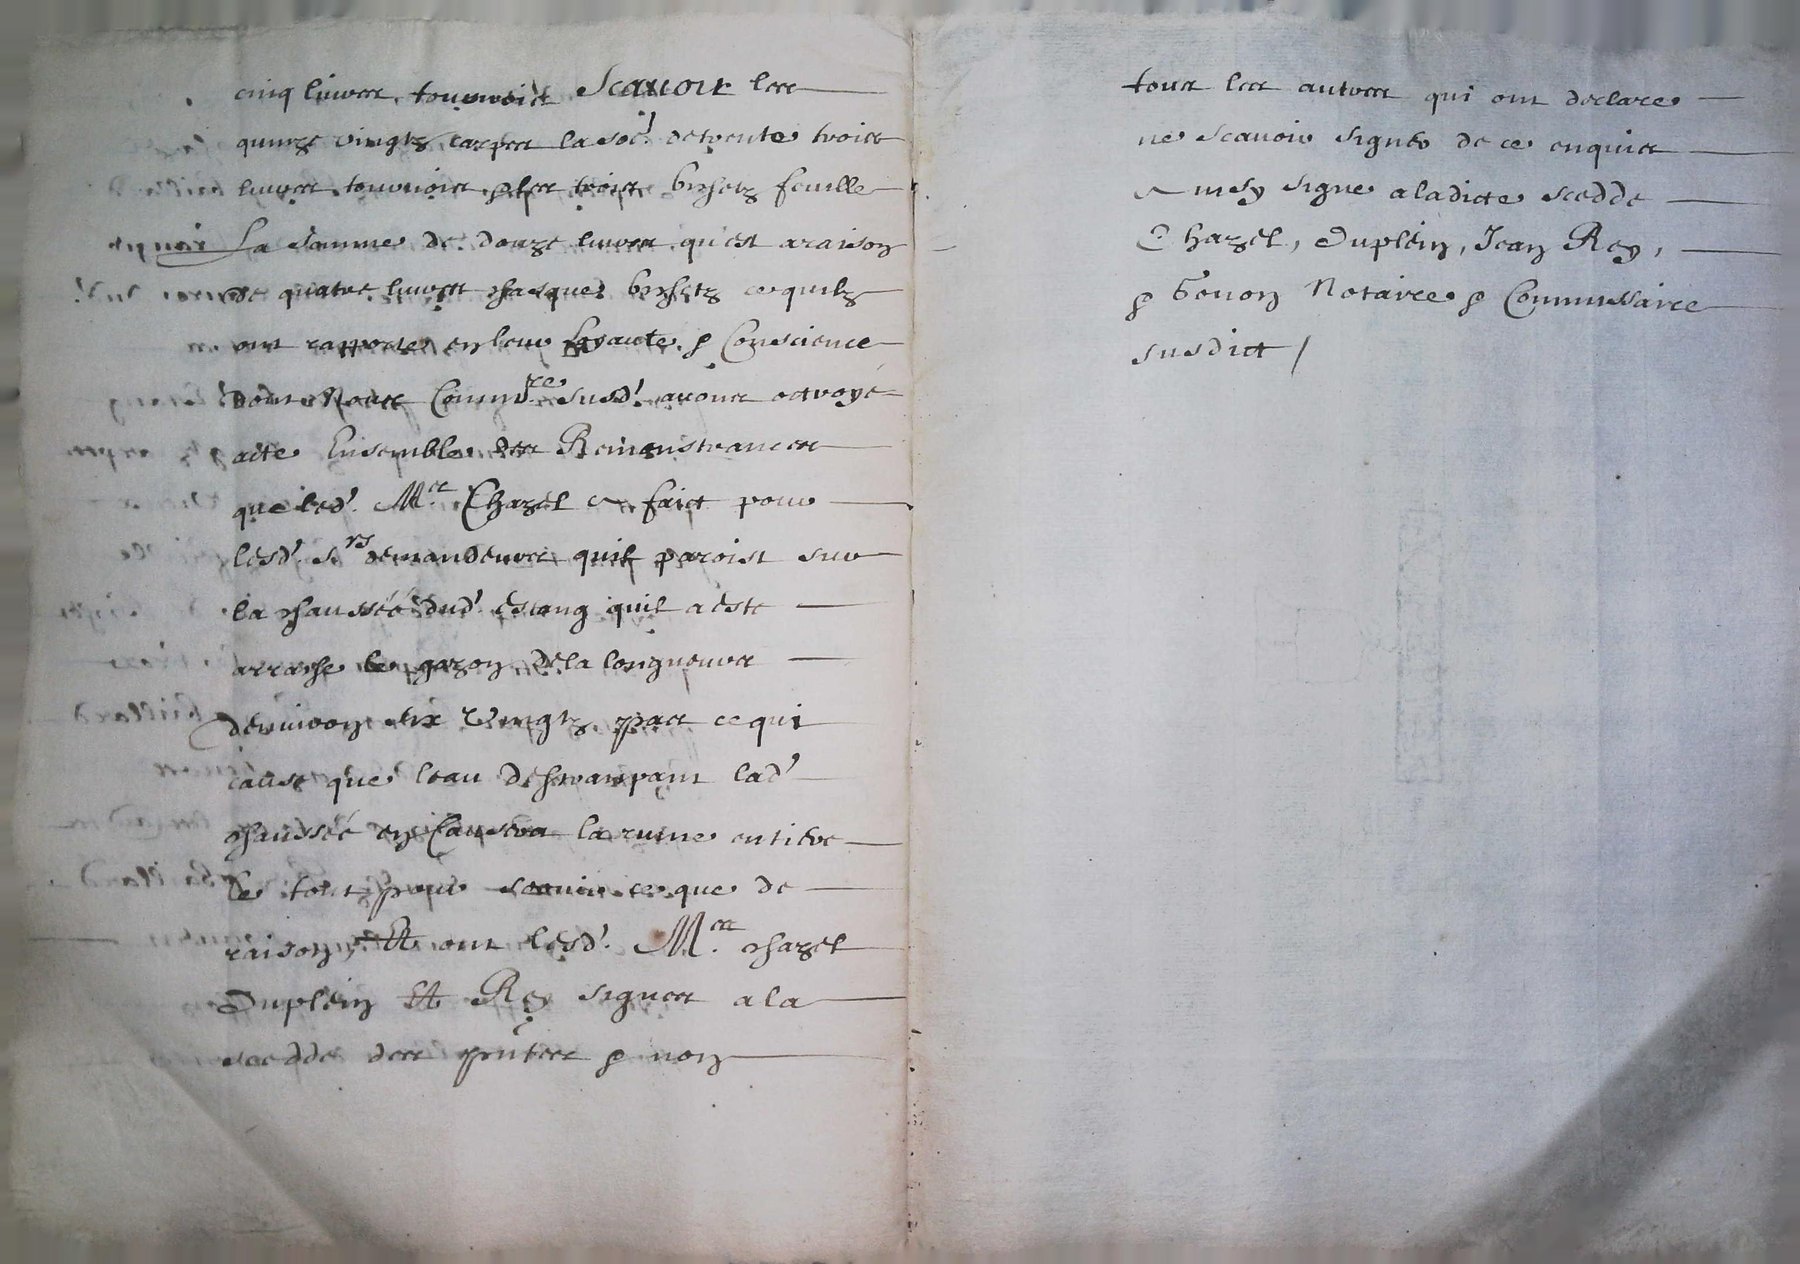 cinq livres tournois Scauoir les
quinze vingtz carpes la so͂e de trente trois
livres tournois & les trois brochetz feuille
La somme de douze livres qu'est a raison
de quatre livres chasque brochetz ce quilz
ont rapporte en leur loyaute & Conscience
dont Nous Comm.re susd! auons octroyé
acte Ensemble des Remonstrances
que led! M.e Chazel a faict pour
lesd! s.rs demandeurs quil paroist sur
la chaussée dud! estang quil a este
arrache le gazon de la longueur
denuiron six vingtz pas ce qui
cause que leau destrampant lad!
chaussée en Causera la ruine entiere
le tout pour seruir ce que de
raison, Et ont lesd! M.es Chazel
Duplein Et Rey signes a la
scedde des p̃ntes & non
tous les autres qui ont declare
ne scauoir signer de ce enquis
Ainsy signe a ladicte scedde
Chazel, Duplein, Jean Rey,
& Gonon Notaire & Commissaire
susdict /